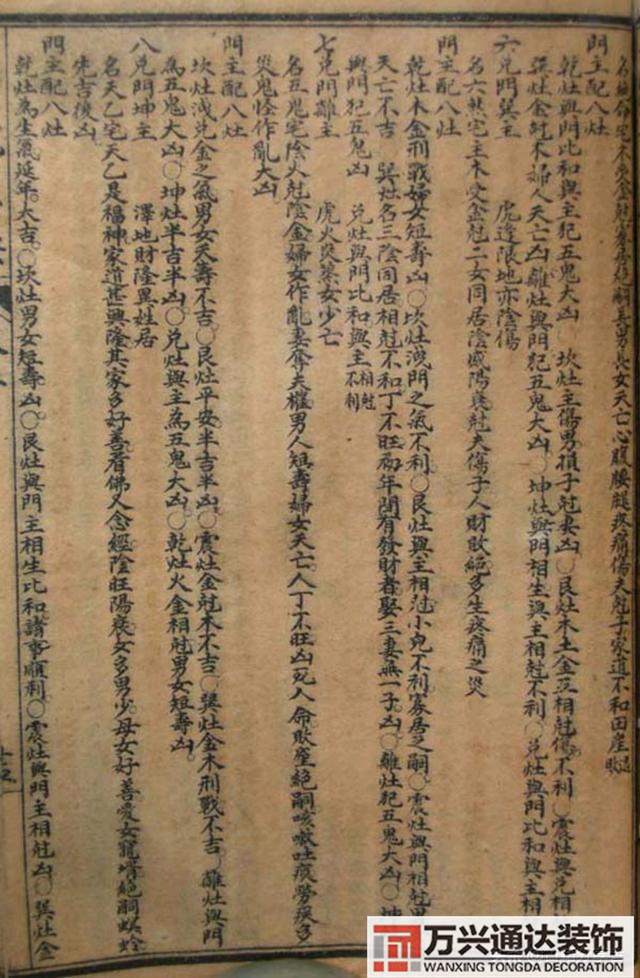 門主配八灶
乾灶與門比和與主犯五鬼大凶 坎灶主傷男損子尅妻凶○艮灶木土金互相尅傷不利○震灶與兌相
巽灶金尅木婦人夭亡凶○離灶與門犯五鬼大凶○坤灶與門相生與主相尅不利○兌灶與門比和與主相
六兌門巽主 虎逢限地亦陰傷
名六煞宅主木受金尅二女同居陰盛陽衰尅夫傷子人財敗絕多生疼痛之災
門主配八灶
乾灶木金刑戰婦女短壽凶○坎灶洩門之氣不利○艮灶與主相尅小兒不利寡居乏嗣○震灶與門相尅男
夭亡不吉 巽灶名三陰同居相尅不和丁不旺初年間有發財者娶三妻無一子凶○離灶犯五鬼大凶○坤
與門犯五鬼凶 兌灶與門比和與主相尅不利
七兌門離主 虎火災策女少亡
名五鬼宅陰火尅陰金婦女作亂妻奪夫權男人短壽婦女夭亡人丁不旺凶死人命敗產絕嗣咳嗽吐痰勞痰多
災鬼怪作亂大凶
門主配八灶
坎灶洩兌金之氣男女夭壽不吉○艮灶平安半吉半凶○震灶金尅木不吉○巽灶金木刑戰不吉 離灶與門
為五鬼大凶○坤灶半吉半凶○兌灶與主為五鬼大凶○乾灶火金相尅男女短壽凶
八兌門坤主 澤地財隆異姓居
名天乙宅天乙是福神家道甚興隆其家多好善看佛又念經陰旺陽衰女多男少母女好善愛女寵壻絕嗣螟蛉
先吉後凶
門主配八灶
乾灶為生氣延年大吉○坎灶男女短壽凶○艮灶與門主相生比和諸事順利○震灶與門主相尅凶○巽灶金
万兴通达装饰
WANXING TONGDA DECORATION